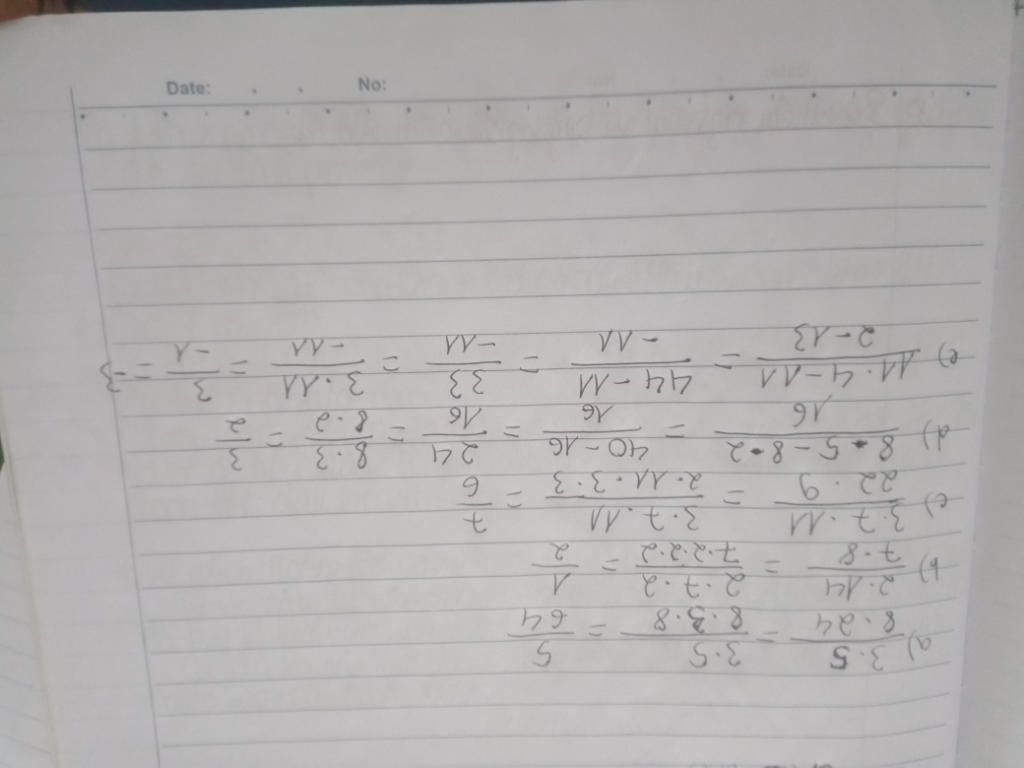 a) 3·5/8·24 = 3·5/8·3·8 = 5/64
b) 2·14/7·8 = 2·7·2/7·2·2·2 = 1/2
c) 3·7·11/22·9 = 3·7·11/2·11·3·3 = 7/6
d) 8·5-8·2/16 = 40-16/16 = 24/16 = 8·3/8·2 = 3/2
e) 11·4-11/2-13 = 44-11/-11 = 33/-11 = 3·11/-11 = 3/-1 = -3
Date: No: